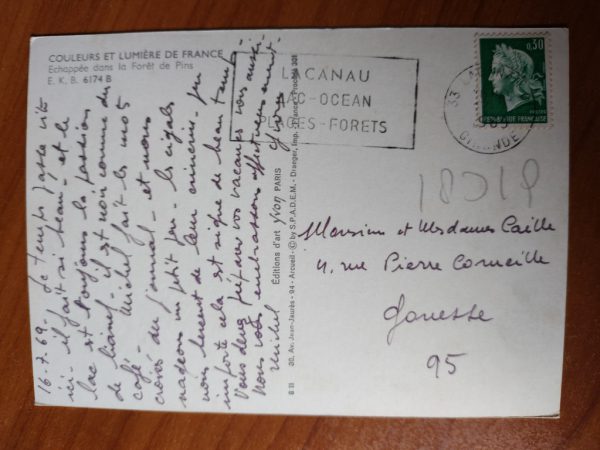 COULEURS ET LUMIÈRE DE FRANCE
Echappée dans la Forêt de Pins
E. K. B. 6174 B
16.7.69. Le temps passe vite
ici - il fait si beau - et le
lac est toujours la passion
de Lionel - il est noir comme du
café - Michel fait les mots
croisés du journal - et nous
nageons un petit peu - les cigales
nous bercent de leur - peu
importe cela est signe de beau temps
Vous deux préparez vos vacances vous aussi -
Nous vous embrassons affectueusement -
Michel Yvonne
Editions d'art yvon PARIS
6 III 30, Av. Jean-Jaurès - 94 - Arcueil - © by S.P.A.D.E.M. - Dranger, Imp. - France - Procédé 301
LACANAU
LAC-OCEAN
PLAGES-FORETS
33
GIRONDE
0,30
POSTES
REPUBLIQUE FRANÇAISE
18019
Monsieur et Mesdames Caille
4, rue Pierre Corneille
Gonesse
95